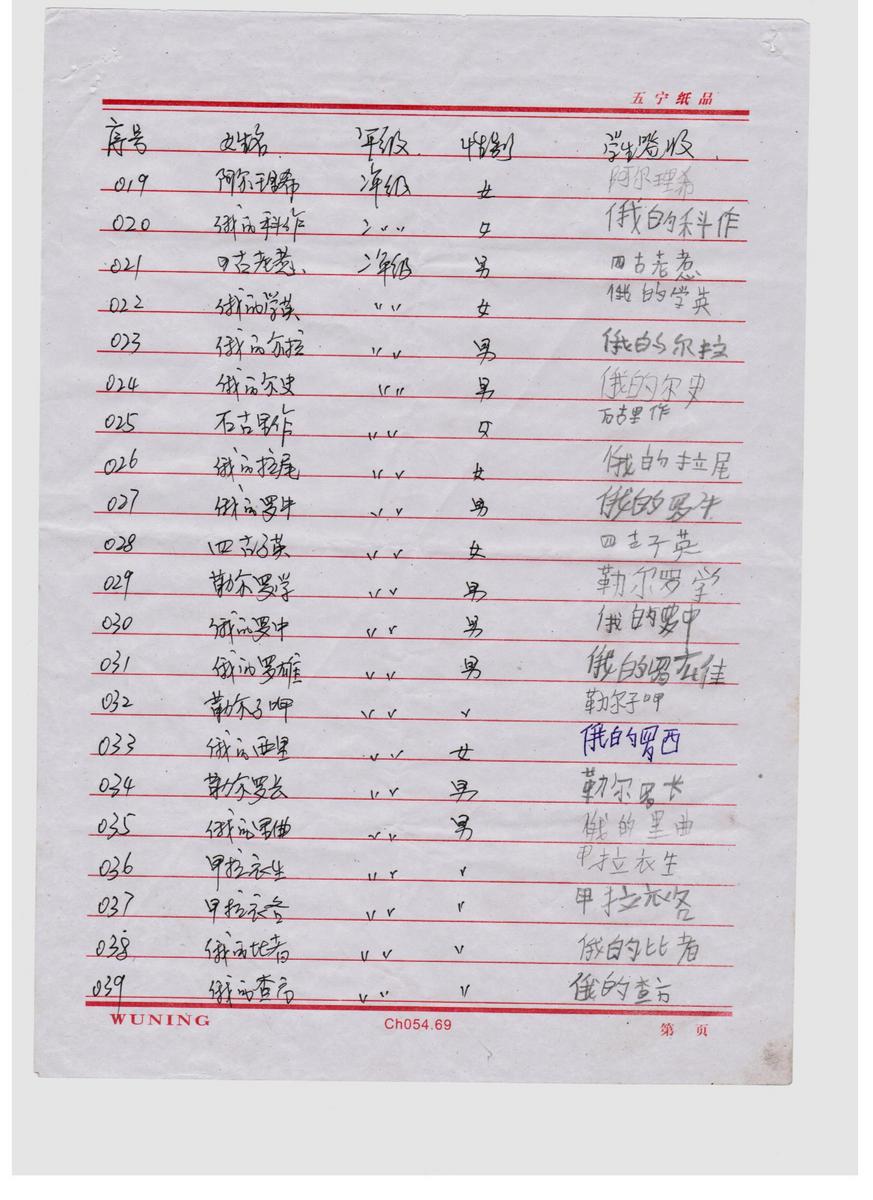 五宁纸品
序号 姓名 年级 性别 学生签收
019 阿尔理希 二年级 女 阿尔理希
020 俄的科作 〃 女 俄的科作
021 四古老惹 二年级 男 四古老惹
022 俄的学英 〃 女 俄的学英
023 俄的尔拉 〃 男 俄的尔拉
024 俄的尔史 〃 男 俄的尔史
025 石古里作 〃 女 石古里作
026 俄的拉尾 〃 女 俄的拉尾
027 俄的罗牛 〃 男 俄的罗牛
028 四吉子英 〃 女 四吉子英
029 勒尔罗学 〃 男 勒尔罗学
030 俄的罗中 〃 男 俄的罗中
031 俄的罗雄 〃 男 俄的罗雄
032 勒尔子呷 〃 〃 勒尔子呷
033 俄的西里 〃 女 俄的罗西
034 勒尔罗长 〃 男 勒尔罗长
035 俄的里曲 〃 男 俄的里曲
036 甲拉衣生 〃 〃 甲拉衣生
037 甲拉衣各 〃 〃 甲拉衣各
038 俄的比者 〃 〃 俄的比者
039 俄的查方 〃 〃 俄的查方
WUNING Ch054.69 第 页